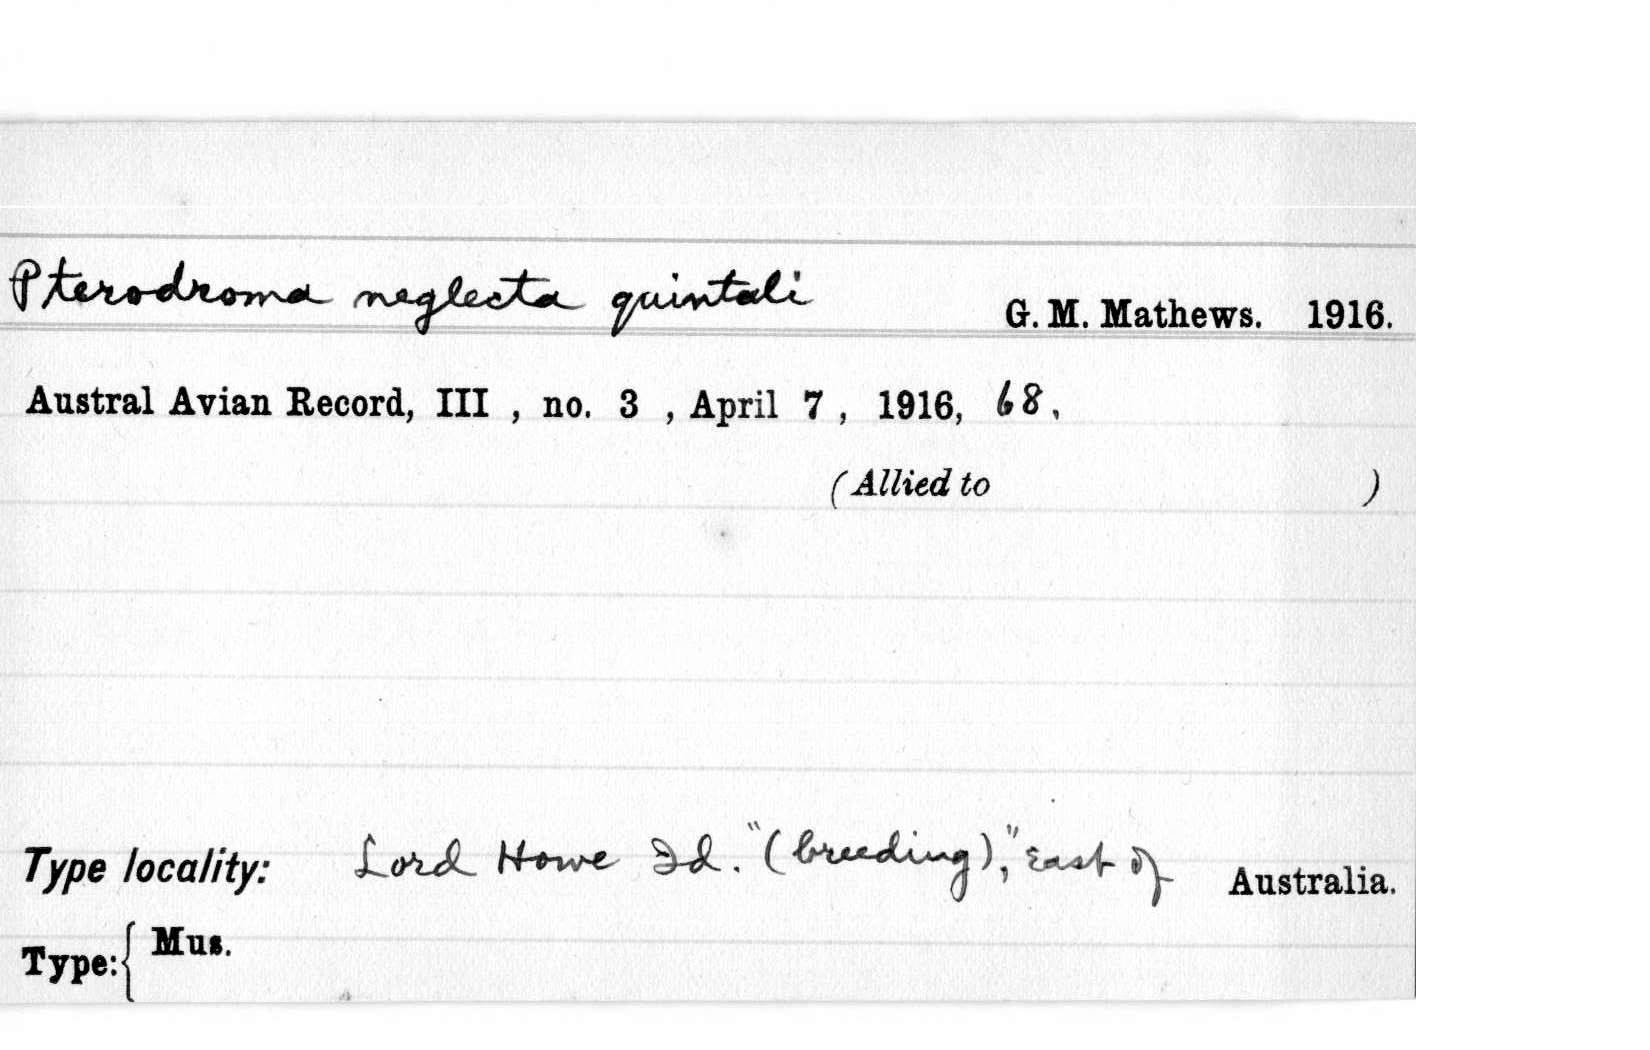 Pterodroma neglecta quintali G. M. Mathews. 1916.
Austral Avian Record, III , no. 3 , April 7 , 1916, 68.
(Allied to )
Type locality: Lord Howe Id. "(breeding)," East of Australia.
Type:{ Mus.